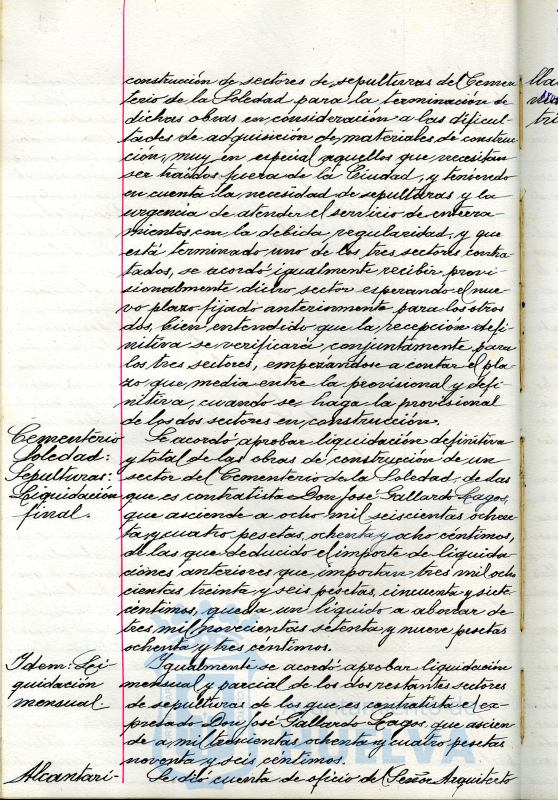 construcción de sectores de sepulturas del Cemen-
terio de la Soledad para la terminación de
dichas obras en consideración a las dificul-
tades de adquisición de materiales de construc-
ción, muy en especial aquellos que necesitan
ser haidos fuera de la Ciudad, y teniendo
en cuenta la necesidad de sepulturas y la
urgencia de atender el servicio de enterra-
mientos con la debida regularidad, y que
está terminado uno de los tres sectores contra-
tados, se acordó igualmente recibir provi-
sionalmente dicho sector esperando el nue-
vo plazo fijado anteriormente para los otros
dos, bien entendido que la recepción defi-
nitiva se verificará conjuntamente para
los tres sectores, empezándose a contar el pla-
zo que media entre la provisional y defi-
nitiva, cuando se haga la provisional
de los dos sectores en construcción.
Cementerio
Soledad:
Sepulturas:
Liquidación
final.
Se acordó aprobar liquidación definitiva
y total de las obras de construcción de un
sector del Cementerio de la Soledad, de las
que es contratista Don José Gallardo Lagos,
que asciende a ocho mil seiscientas ochen-
ta y cuatro pesetas, ochenta y ocho céntimos,
de las que deducido el importe de liquida-
ciones anteriores que importan tres mil ocho-
cientas treinta y seis pesetas, cincuenta y siete
céntimos, queda un líquido a abonar de
tres mil novecientas setenta y nueve pesetas
ochenta y tres céntimos.
Idem: Li-
quidación
mensual.
Igualmente se acordó aprobar liquidación
mensual y parcial de los dos restantes sectores
de sepulturas de los que es contratista el ex-
presado Don José Gallardo Lagos, que ascien-
de a mil trescientas ochenta y cuatro pesetas
noventa y seis céntimos.
Alcantari-
Se dió cuenta de oficio del Señor Arquitecto
HUELVA